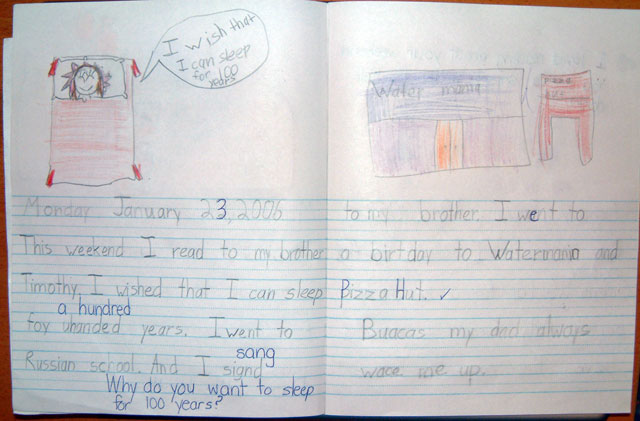 I wish that
I can sleep
for 100
years
Water mania
Monday January 23, 2006
This weekend I read to my brother
Timothy. I wished that I can sleep
a hundred
foy uhanded years. I went to
sang
Russian school. And I signd
Why do you want to sleep
for 100 years?
to my brother. I went to
a birtday to Watermania and
Pizza Hut. ✓
Buacas my dad always
wace me up.